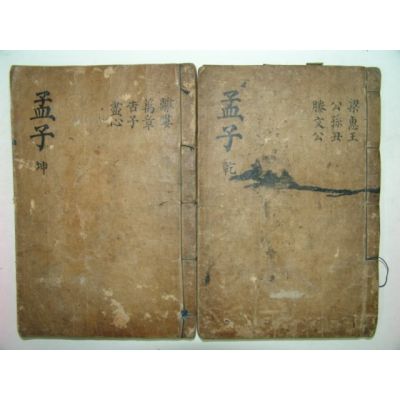 孟子
乾
梁惠王
公孫丑
滕文公
孟子
坤
離婁
萬章
告子
盡心